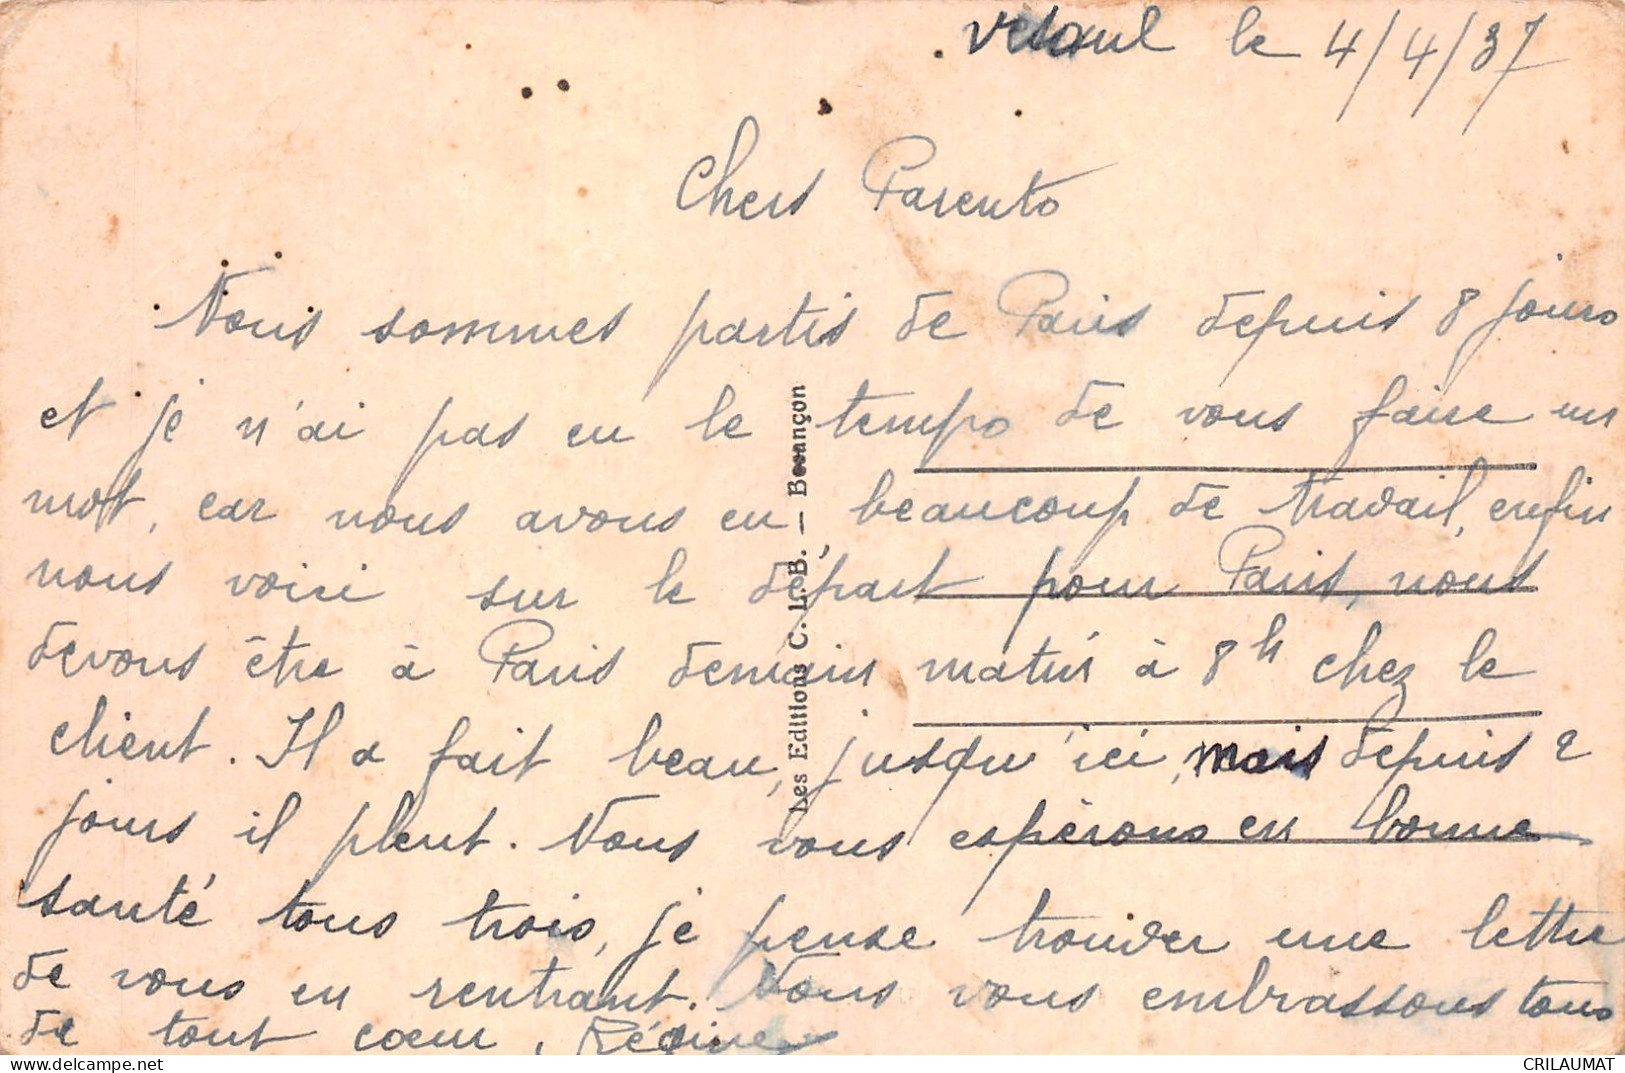 Vesoul le 4/4/37
Chers Parents
Nous sommes partis de Paris depuis 8 jours
et je n'ai pas eu le temps de vous faire un
mot, car nous avons eu beaucoup de travail, enfin
nous voici sur le départ pour Paris, nous
devons être à Paris demain matin à 8h chez le
client. Il a fait beau, jusqu'ici, mais depuis 2
jours il pleut. Nous vous espérons en bonne
santé tous trois, je pense trouver une lettre
de vous en rentrant. Nous vous embrassons tous
de tout cœur, Régine
Les Editions C. L. B. — Besançon
CRILAUMAT